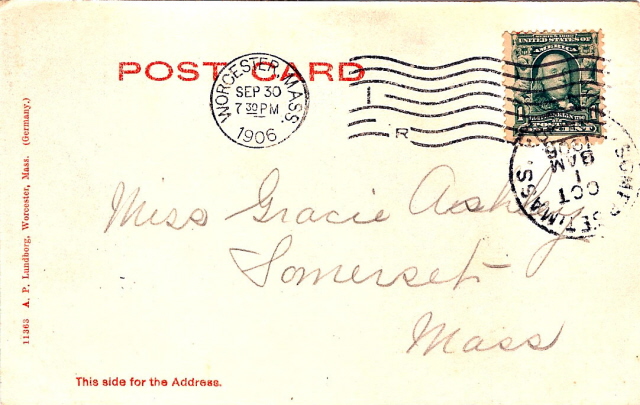 POST CARD
WORCESTER, MASS.
SEP 30
7 30 PM
1906
R
UNITED STATES OF
AMERICA
1
SOMERSET, MASS
OCT
1
8AM
1906
Miss Gracie Ashley
Somerset
Mass
11363 A. P. Lundborg, Worcester, Mass. (Germany.)
This side for the Address.